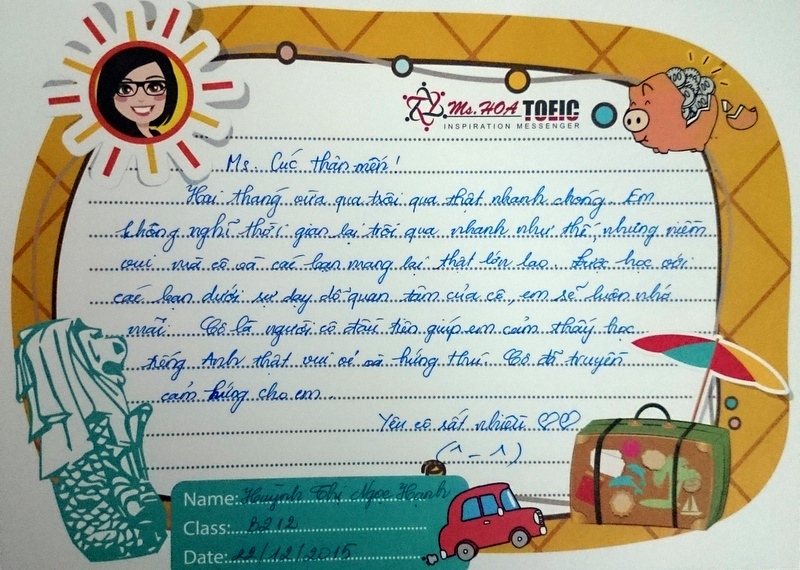 Ms. HOA TOEIC
INSPIRATION MESSENGER
Ms. Cúc thân mến!
Hai tháng vừa qua trôi qua thật nhanh chóng. Em
không nghĩ thời gian lại trôi qua nhanh như thế, nhưng niềm
vui mà cô và các bạn mang lại thật lớn lao. Được học với
các bạn dưới sự dạy dỗ quan tâm của cô, em sẽ luôn nhớ
mãi. Cô là người cô đầu tiên giúp em cảm thấy học
tiếng Anh thật vui vẻ và hứng thú. Cô đã truyền
cảm hứng cho em.
Yêu cô rất nhiều ♡♡
(^ _ ^)
Name: Huỳnh Thị Ngọc Hạnh
Class: B212
Date: 22/12/2015